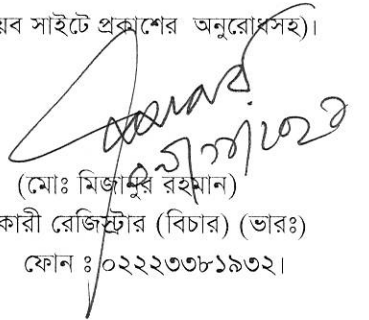 য়ব সাইটে প্রকাশের অনুরোধসহ)।
(মোঃ মিজানুর রহমান)
কারী রেজিস্ট্রার (বিচার) (ভারঃ)
ফোন ঃ ০২২২৩৩৮১৯৩২।